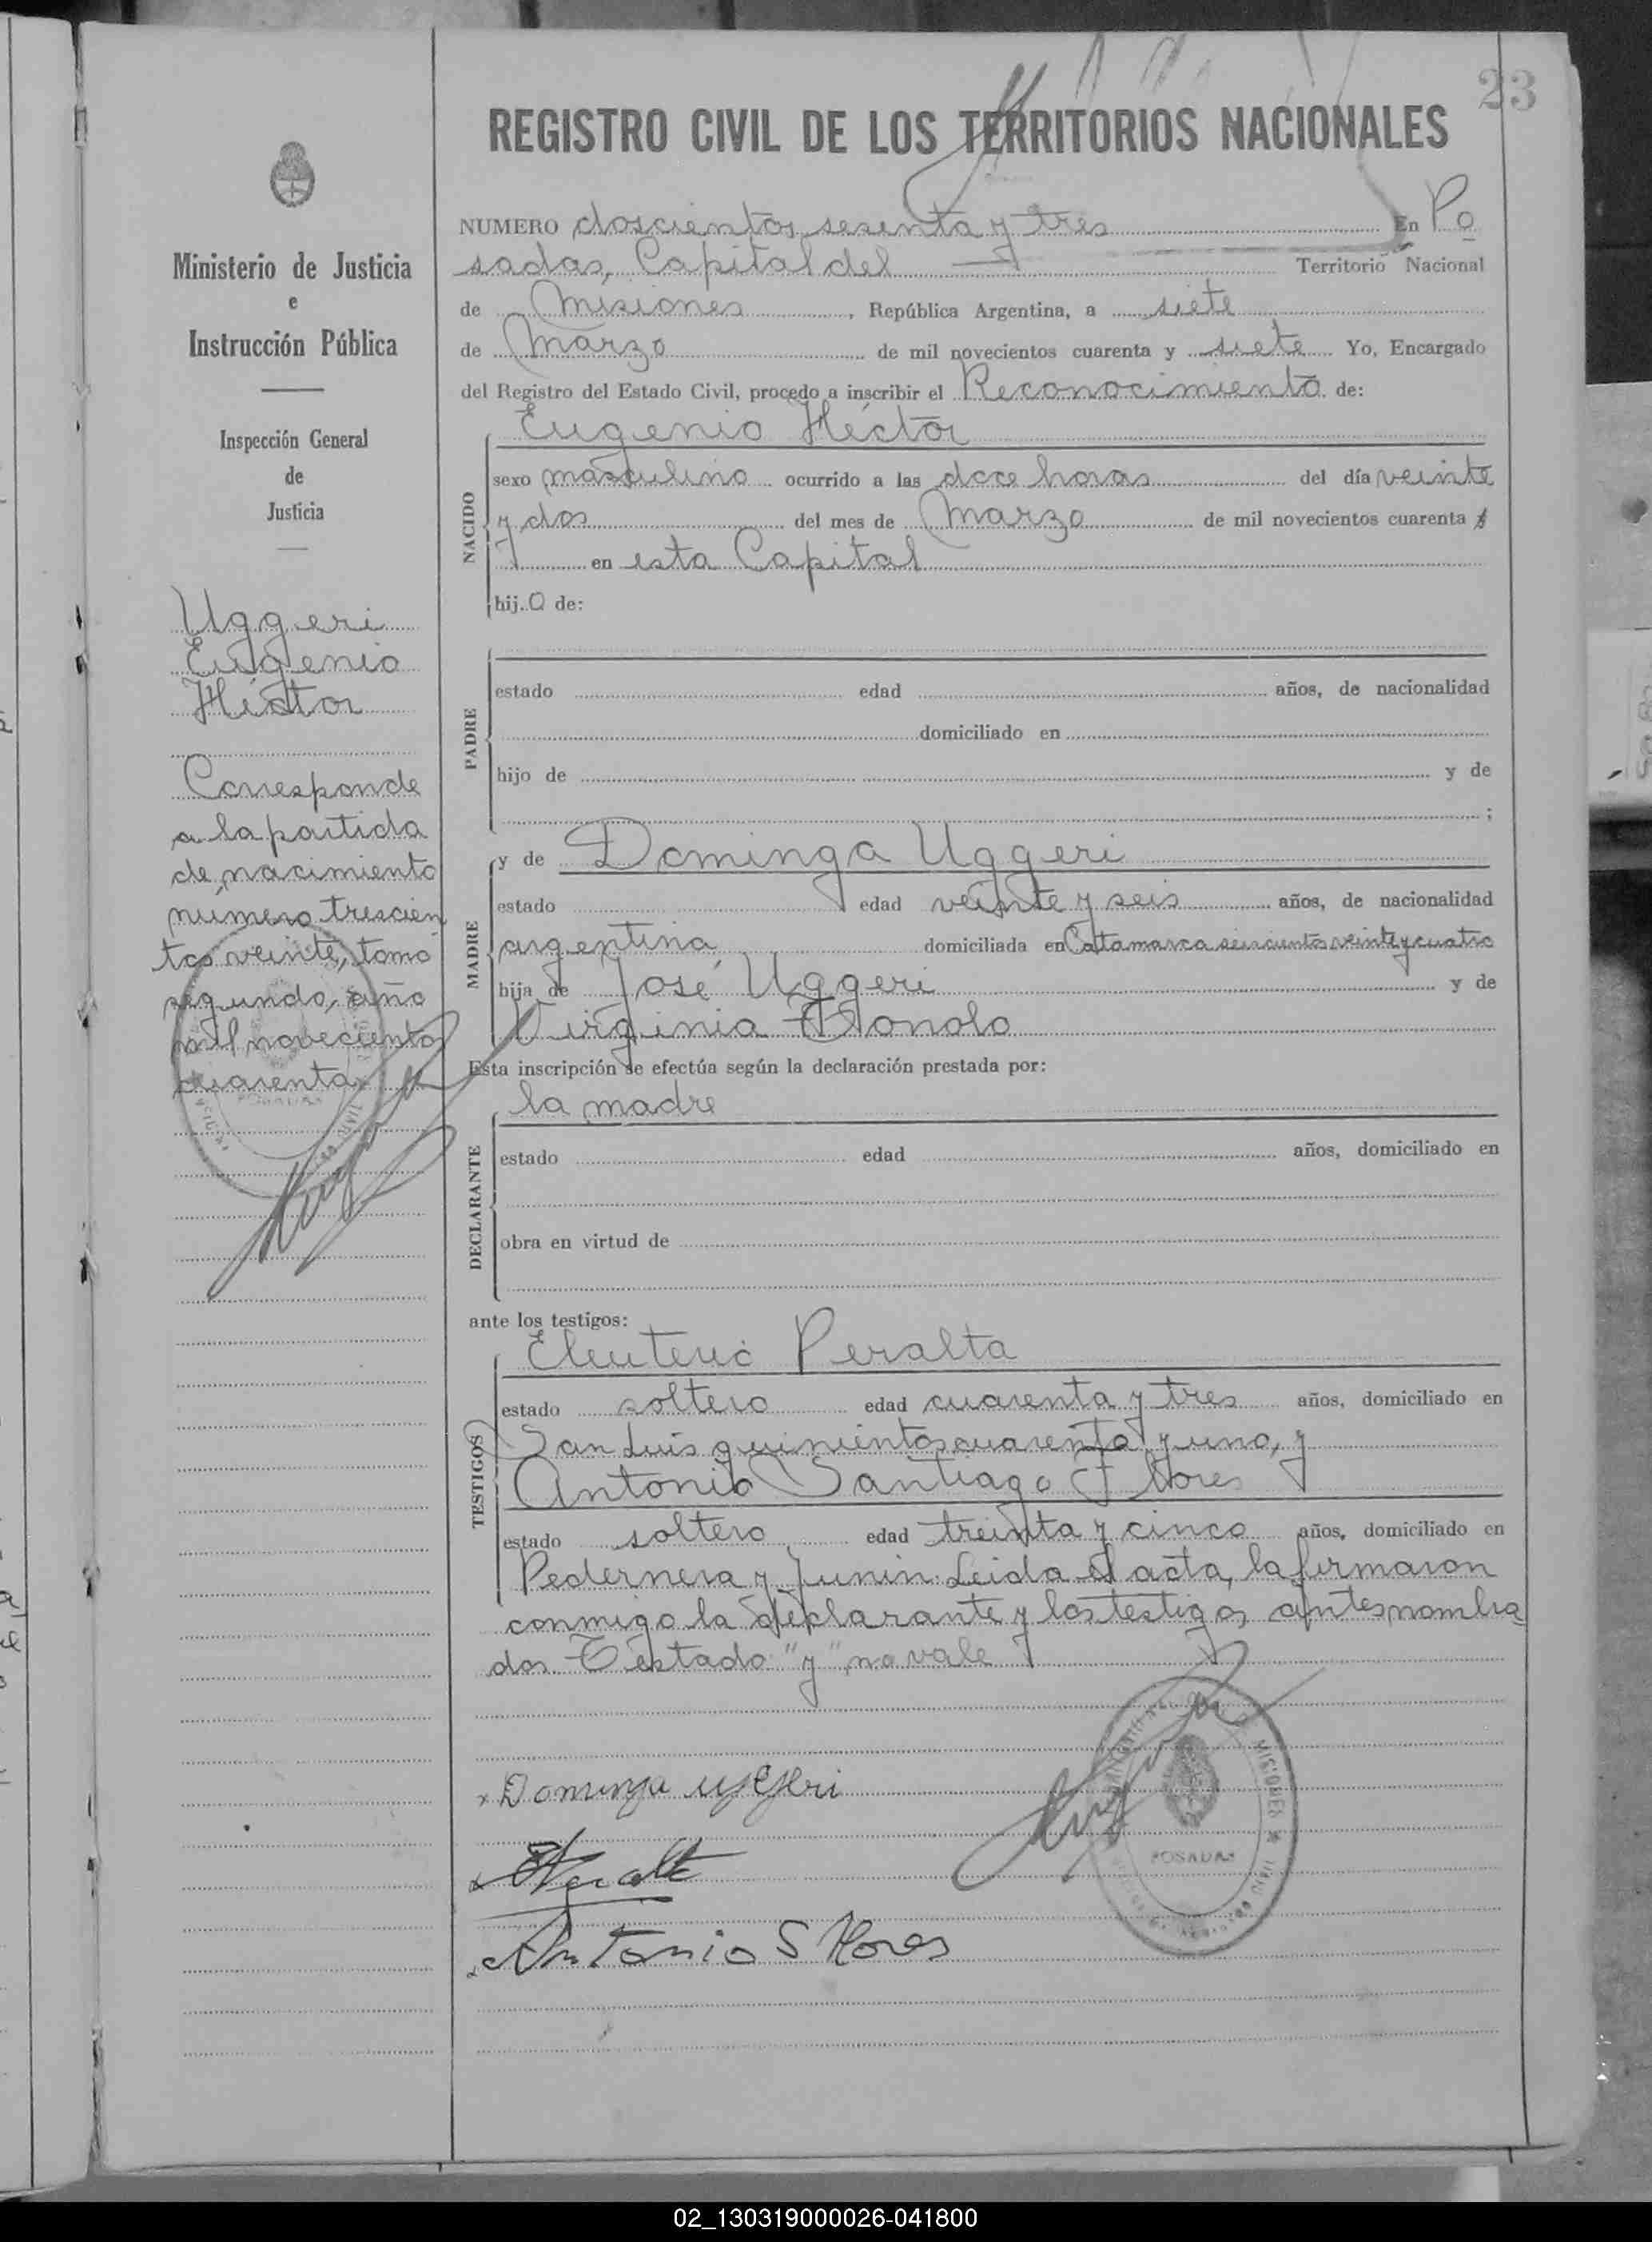 23
REGISTRO CIVIL DE LOS TERRITORIOS NACIONALES
Ministerio de Justicia
e
Instrucción Pública
Inspección General
de
Justicia
Uggeri
Eugenio
Héctor
Corresponde
a la partida
de nacimiento
número trescien
tos veinte, tomo
segundo, año
mil novecientos
cuarenta
NUMERO doscientos sesenta y tres En Po
sadas, Capital del Territorio Nacional
de Misiones, República Argentina, a siete
de Marzo de mil novecientos cuarenta y siete Yo, Encargado
del Registro del Estado Civil, procedo a inscribir el Reconocimiento de:
Eugenio Héctor
NACIDO
sexo masculino ocurrido a las doce horas del día veinte
y dos del mes de Marzo de mil novecientos cuarenta y
en esta Capital
hijo de:
PADRE
estado edad años, de nacionalidad
domiciliado en
hijo de y de
;
MADRE
y de Dominga Uggeri
estado edad veinte y seis años, de nacionalidad
argentina domiciliada en Catamarca seiscientos veinte y cuatro
hija de José Uggeri y de
Virginia
Esta inscripción se efectúa según la declaración prestada por:
la madre
DECLARANTE
estado edad años, domiciliado en
obra en virtud de
ante los testigos:
TESTIGOS
Eleuterio Peralta
estado soltero edad cuarenta y tres años, domiciliado en
San Luis quinientos cuarenta y uno, y
Antonio Santiago Flores
estado soltero edad treinta y cinco años, domiciliado en
Pedernera y Junin. Leida el acta, la firmaron
conmigo la declarante y los testigos antes nombra
dos. Testado "y" no vale
Dominga Uggeri
EPeralta
Antonio S Flores
MISIONES
POSADAS
02_130319000026-041800